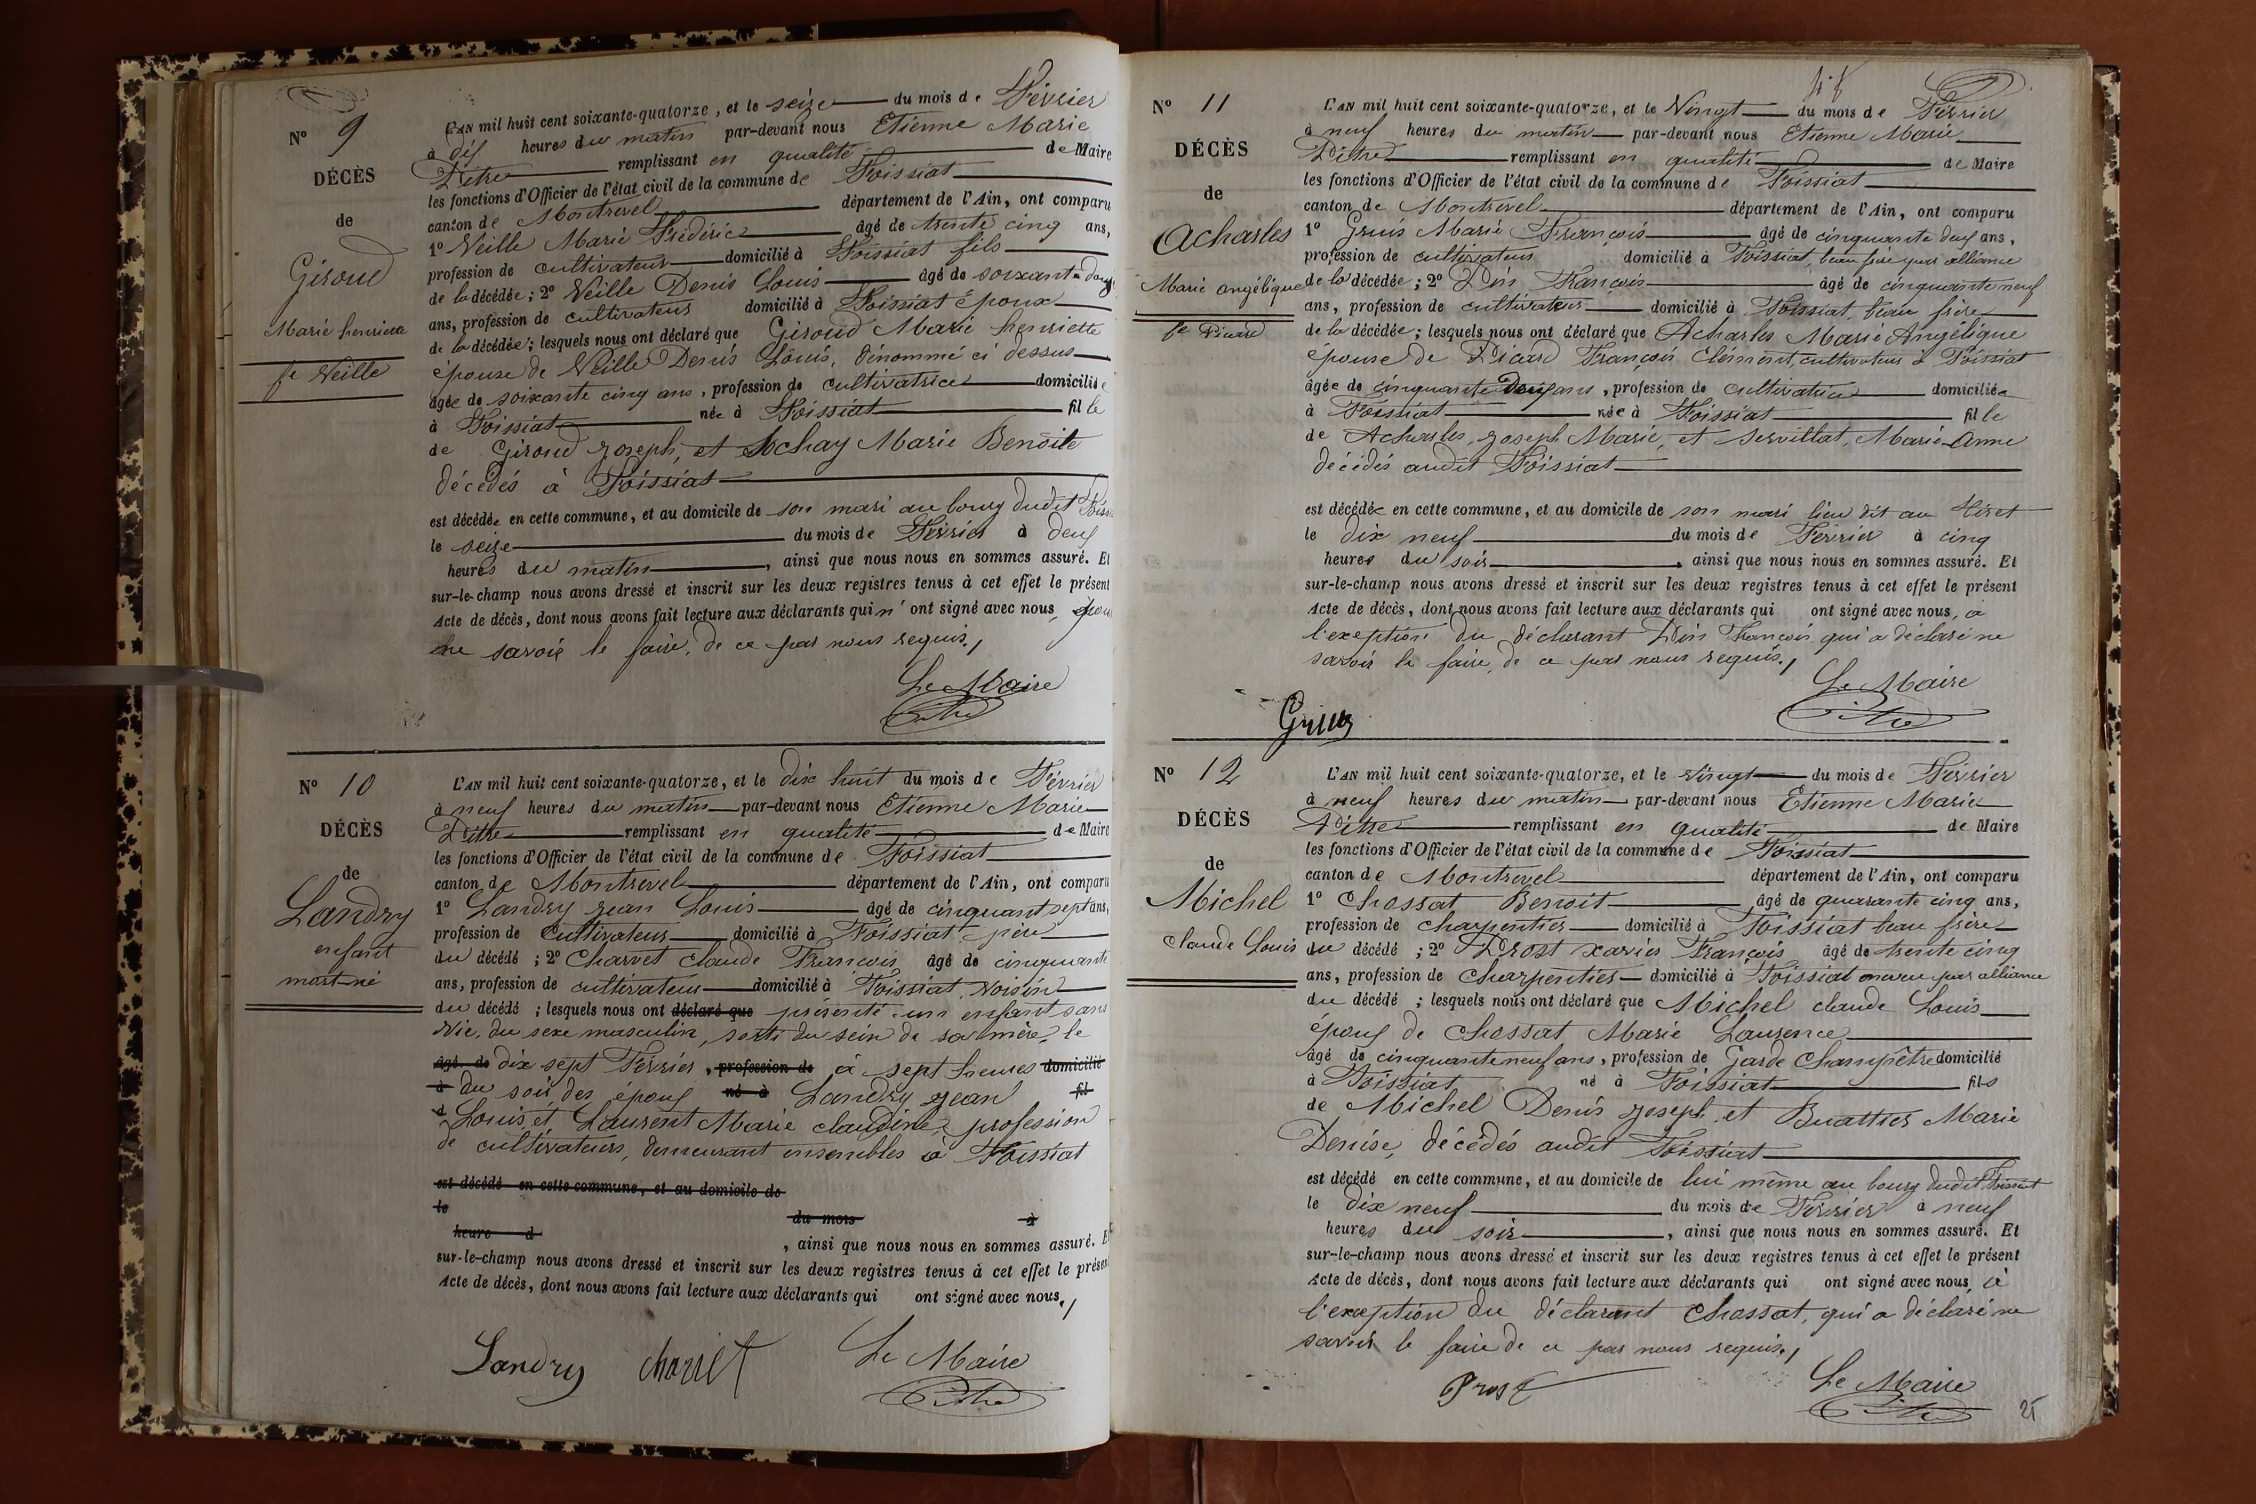 N° 9
DÉCÈS
de
Giroud
Marie henriette
fe Veille
L'AN mil huit cent soixante-quatorze, et le seize du mois de Février
à dix heures du matin par-devant nous Etienne Marie
Pitre remplissant en qualité de Maire
les fonctions d'Officier de l'état civil de la commune de Foissiat
canton de Montrevel département de l'Ain, ont comparu
1° Veille Marie Frédéric âgé de trente cinq ans,
profession de cultivateur domicilié à Foissiat fils
de la décédée; 2° Veille Denis Louis âgé de soixante douze
ans, profession de cultivateur domicilié à Foissiat époux
de la décédée; lesquels nous ont déclaré que Giroud Marie henriette
épouse de Veille Denis Louis, dénommé ci dessus
âgée de soixante cinq ans, profession de cultivatrice domiciliée
à Foissiat née à Foissiat fille
de Giroud Joseph, et Sochay Marie Benoite
décédés à Foissiat
est décédée en cette commune, et au domicile de son mari au bourg dudit Foissiat
le seize du mois de Février à deux
heures du matin, ainsi que nous nous en sommes assuré. Et
sur-le-champ nous avons dressé et inscrit sur les deux registres tenus à cet effet le présent
Acte de décès, dont nous avons fait lecture aux déclarants qui n'ont signé avec nous, pour
ne savoir le faire, de ce par nous requis,
Le Maire
Pitre
N° 10
DÉCÈS
de
Landry
enfant
mort-né
L'AN mil huit cent soixante-quatorze, et le dix huit du mois de Février
à neuf heures du matin par-devant nous Etienne Marie
Pitre remplissant en qualité de Maire
les fonctions d'Officier de l'état civil de la commune de Foissiat
canton de Montrevel département de l'Ain, ont comparu
1° Landry Jean Louis âgé de cinquant sept ans,
profession de cultivateur domicilié à Foissiat père
du décédé; 2° Charvet Claude François âgé de cinquante
ans, profession de cultivateur domicilié à Foissiat, Voisin
du décédé; lesquels nous ont déclaré que présenté un enfant sans
Vie, du sexe masculin, sorti du sein de sa mère, le
âgé de dix sept Février, profession de à sept heures domicilié
à du soir, des époux né à Landry Jean fil
d Louis, et Laurent Marie claudine, profession
de cultivateurs, demeurant ensembles à Foissiat
est décédé en cette commune, et au domicile de
le du mois à
heure d, ainsi que nous nous en sommes assuré. Et
sur-le-champ nous avons dressé et inscrit sur les deux registres tenus à cet effet le présent
Acte de décès, dont nous avons fait lecture aux déclarants qui ont signé avec nous,
Landry charvet Le Maire
Pitre
N° 11
DÉCÈS
de
Acharles
Marie angélique
fe Picard
L'AN mil huit cent soixante-quatorze, et le Vingt du mois de Février
à neuf heures du matin par-devant nous Etienne Marie
Pitre remplissant en qualité de Maire
les fonctions d'Officier de l'état civil de la commune de Foissiat
canton de Montrevel département de l'Ain, ont comparu
1° Gruis Marie François âgé de cinquante deux ans,
profession de cultivateur domicilié à Foissiat, beau frère par alliance
de la décédée; 2° Pin François âgé de cinquante neuf
ans, profession de cultivateur domicilié à Foissiat, beau frère
de la décédée; lesquels nous ont déclaré que Acharles Marie Angélique
épouse de Picard François Clément, cultivateur à Foissiat
âgée de cinquante deux ans, profession de cultivatrice domiciliée
à Foissiat née à Foissiat fille
de Acharles, Joseph Marie, et Servillat, Marie-Anne
décédés audit Foissiat
est décédée en cette commune, et au domicile de son mari lieu dit au Tiret
le dix neuf du mois de Février à cinq
heures du soir, ainsi que nous nous en sommes assuré. Et
sur-le-champ nous avons dressé et inscrit sur les deux registres tenus à cet effet le présent
Acte de décès, dont nous avons fait lecture aux déclarants qui ont signé avec nous, à
l'exeption du déclarant Pin François, qui a déclaré ne
savoir le faire, de ce par nous requis,
Le Maire
Gruis Pitre
N° 12
DÉCÈS
de
Michel
claude Louis
L'AN mil huit cent soixante-quatorze, et le Vingt du mois de Février
à neuf heures du matin par-devant nous Etienne Marie
Pitre remplissant en qualité de Maire
les fonctions d'Officier de l'état civil de la commune de Foissiat
canton de Montrevel département de l'Ain, ont comparu
1° Chossat Benoit âgé de quarante cinq ans,
profession de charpentier domicilié à Foissiat beau frère
du décédé; 2° Prost xavier François âgé de trente cinq
ans, profession de Charpentier domicilié à Foissiat neveu par alliance
du décédé; lesquels nous ont déclaré que Michel claude Louis
époux de Chossat Marie Laurence
âgé de cinquante neuf ans, profession de Garde Champêtre domicilié
à Foissiat né à Foissiat fils
de Michel Denis Joseph, et Buattier Marie
Denise, décédés audit Foissiat
est décédé en cette commune, et au domicile de lui même au bourg dudit Foissiat
le dix neuf du mois de Février à neuf
heures du soir, ainsi que nous nous en sommes assuré. Et
sur-le-champ nous avons dressé et inscrit sur les deux registres tenus à cet effet le présent
Acte de décès, dont nous avons fait lecture aux déclarants qui ont signé avec nous, à
l'exeption du déclarant Chossat, qui a déclaré ne
savoir le faire de ce par nous requis,
Prost Le Maire
Pitre
25